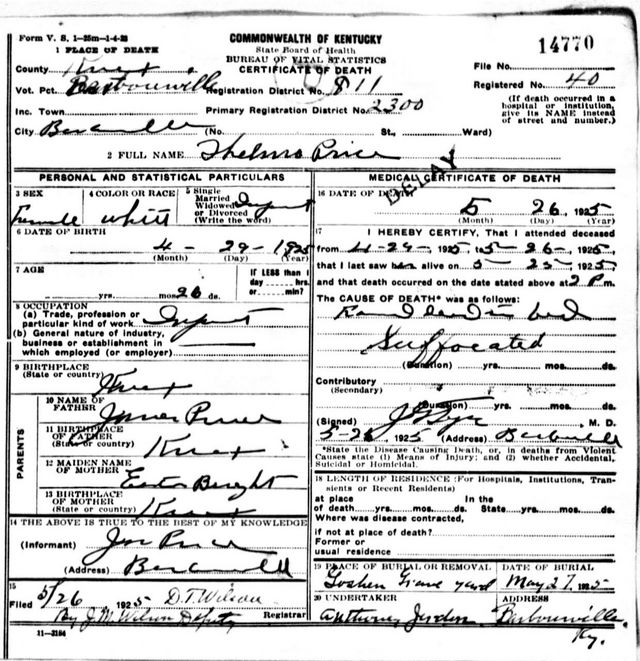 Form V. S. 1-25m-1-4-23
COMMONWEALTH OF KENTUCKY
State Board of Health
BUREAU OF VITAL STATISTICS
CERTIFICATE OF DEATH
14770
1 PLACE OF DEATH
County Knox
File No.
Vot. Pct. Barbourville
Registration District No. 811
Registered No. 40
Inc. Town
Primary Registration District No. 2300
(If death occurred in a hospital or institution, give its NAME instead of street and number.)
City
(No. St., Ward)
2 FULL NAME Thelma Price
DELAY
PERSONAL AND STATISTICAL PARTICULARS
3 SEX Female
4 COLOR OR RACE White
5 Single Married Widowed or Divorced (Write the word) Infant
6 DATE OF BIRTH
4 - 29 - 1925
(Month) (Day) (Year)
7 AGE
yrs. mos. 26 ds.
IF LESS than 1 day hrs. or min.?
8 OCCUPATION
(a) Trade, profession or particular kind of work Infant
(b) General nature of industry, business or establishment in which employed (or employer)
9 BIRTHPLACE (State or country) Knox
PARENTS
10 NAME OF FATHER
11 BIRTHPLACE OF FATHER (State or country) Knox
12 MAIDEN NAME OF MOTHER
13 BIRTHPLACE OF MOTHER (State or country) Knox
14 THE ABOVE IS TRUE TO THE BEST OF MY KNOWLEDGE
(Informant) Price
(Address)
15
Filed 5/26 1925 D.T. Wilson
Registrar
By J.M. Wilson Deputy
11-3184
MEDICAL CERTIFICATE OF DEATH
16 DATE OF DEATH
5 26, 1925
(Month) (Day) (Year)
17 I HEREBY CERTIFY, That I attended deceased
from 4-29-, 1925, to 5-26-, 1925
that I last saw h alive on 5-25-, 1925
and that death occurred on the date stated above at 2 P m.
The CAUSE OF DEATH* was as follows:
in bed
Suffocated
(Duration) yrs. mos. ds.
Contributory
(Secondary)
(Duration) yrs. mos. ds.
(Signed) M. D.
5-26, 1925 (Address)
*State the Disease Causing Death, or, in deaths from Violent Causes state (1) Means of Injury; and (2) whether Accidental, Suicidal or Homicidal.
18 LENGTH OF RESIDENCE (For Hospitals, Institutions, Transients or Recent Residents)
at place of death yrs. mos. ds. In the State yrs. mos. ds.
Where was disease contracted, if not at place of death?
Former or usual residence
19 PLACE OF BURIAL OR REMOVAL
Goshen Grave yard
DATE OF BURIAL
May 27, 1925
20 UNDERTAKER
Anthony
ADDRESS
Barbourville Ky.